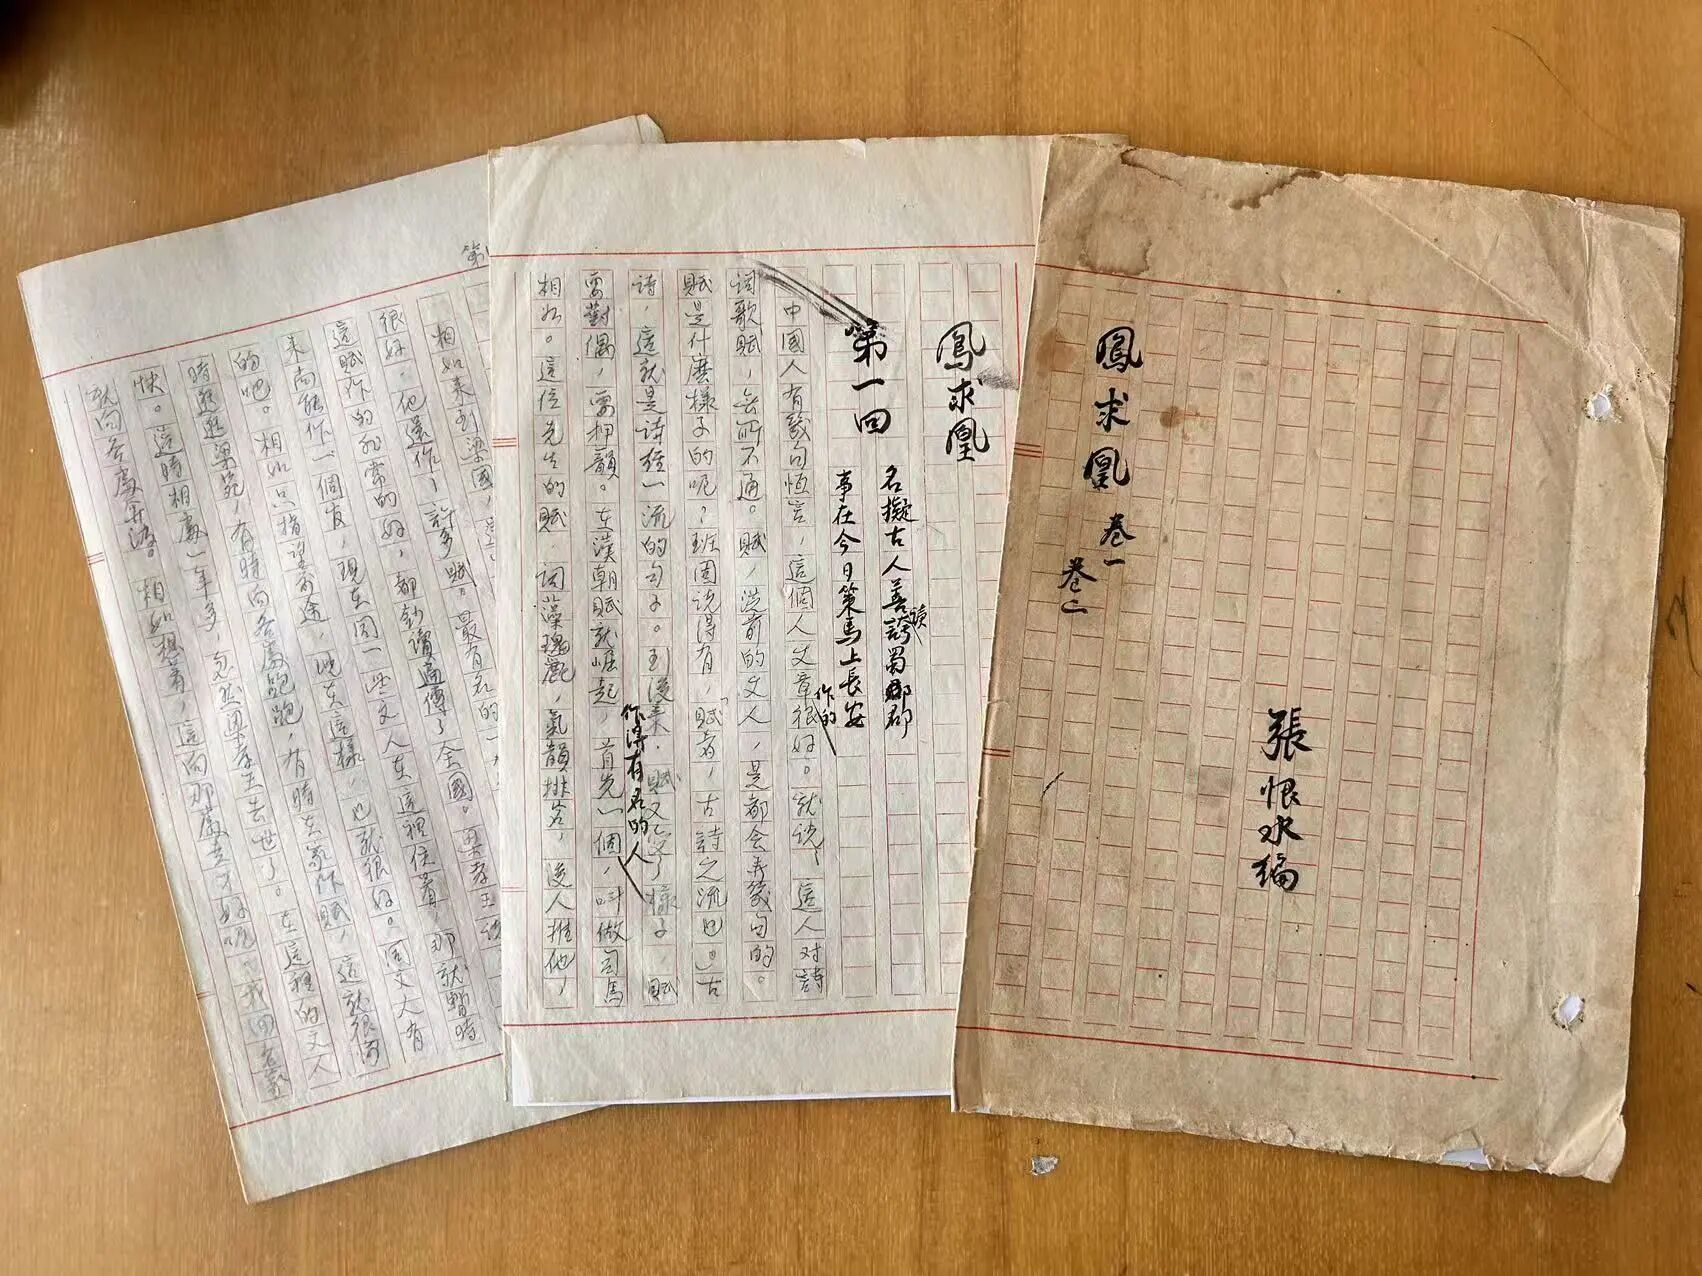 鳳求凰 卷一
卷二
張恨水編
鳳求凰
第一回
名擬古人善讀誇蜀郡
事在今日策馬上長安
中國人有幾句恒言,這個人文章作的很好。就說,這人对詩
詞歌賦,无所不通。賦,從前的文人,是都会弄幾句的。
賦是什麼樣子的呢?班固說得有,「賦者,古詩之流也」古
詩,這就是詩經一流的句子。到後來,賦又变了樣子,賦
要對偶,要押韻。在漢朝賦就崛起,首先一個作得有名的人,叫做司馬
相如。這位先生的賦,詞藻瑰麗,氣韻排宕,後人推他,
第
相如来到梁國,
很好,他還作了許多賦。最有名的一
這賦作的非常的好,都鈔讀過傳了全國。梁孝王
来尚能作一個友,現在同一些文人在這裡住着,那就暫時
的吧。相如只指望前途,現在這樣,也就很好。同文人有
時遊逛梁苑,有時向各處跑跑,有時在家作賦,這就很何
快。這時相處一年多,忽然梁孝王去世了。在這裡的文人
就向各處奔波。相如想着,這向那處去才好呢。我回